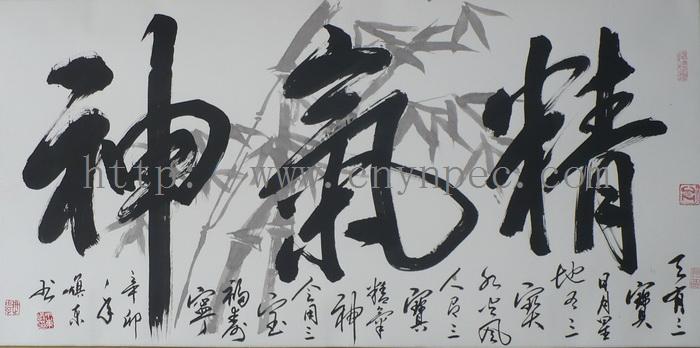 精氣神
天有三
寶
日月星
地有三
寶
水火風
人有三
寶
精氣
神
合用三
宝
福壽
寧
辛卯
书
http://www.cnynpec.com